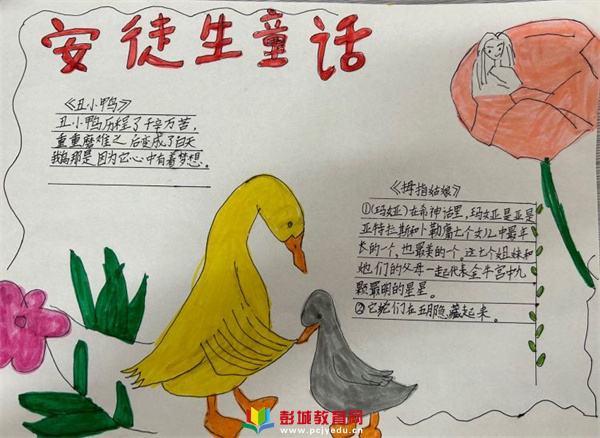 安徒生童话
《丑小鸭》
丑小鸭历程了千辛万苦,
重重磨难之后变成了白天
我鸟那是因为它心中有着梦想.
《拇指姑娘》
①(玛娅)在希神话里,玛娅是亚是
亚特拉斯和卜勒庸七个女儿中最年
长的一个,也最美的一个,这七个姐妹和
她们的父母一起代表金牛宫中九
颗最明的星星。
②它它们在五月隐藏起来.
彭城教育网
www.pcjyedu.cn